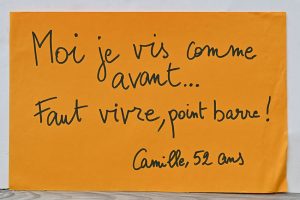 Moi je vis comme
avant...
Faut vivre, point barre !
Camille, 52 ans